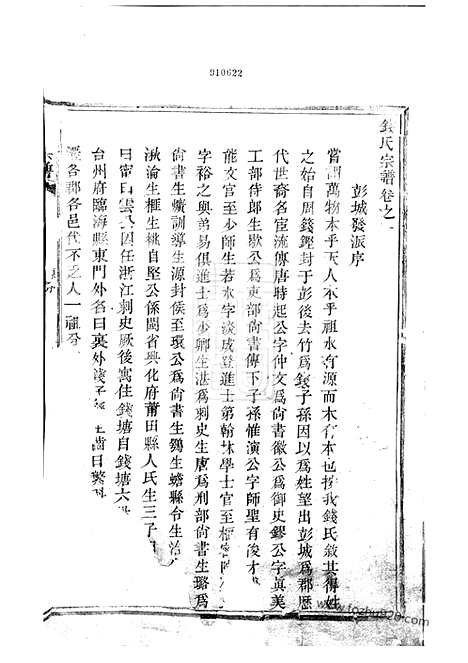 910622
錢氏宗譜卷之一
彭城發派序
嘗謂萬物本乎天人本乎祖水有源而木有本也按我錢氏敘其得姓
之始自周錢鏗封于彭後去竹為錢子孫因以為姓望出彭城為郡歷
代世裔各宦流傳唐特起公字仲文為尚書徽公為御史鏐公字眞美
工部侍郎生歇公為吏部尚書傳下子孫惟演公字師聖有俊才
能文官至少師生若水字淡成登進士第翰林學士官至樞密
字裕之與弟易俱進士為少卿生湛為刺史生唐為刑部尚書生璐為
尚書生纊訓導生源封侯至環公為尚書生鷄生蟾縣令生洽
湫淪生榧生純自堅公係閩省興化府莆田縣人氏生三子曰
曰甯曰雲因任浙江刺史厥後寓住錢塘自錢塘六
台州府臨海縣東門外名曰裏外錢子 生齒日繁
遷各郡各邑代不之人一祖分
www.fozhu920.com